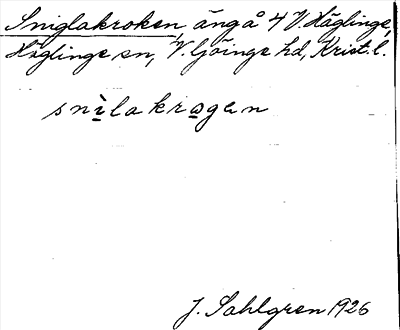 Sniglakroken, ängå 4 V. Häglinge,
Häglinge sn, V. Göinge hd, Krist. l.
snìlakrogen
J. Sahlgren 1926